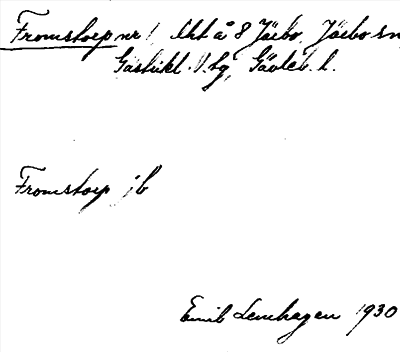 Fromstorp nr 1 lht å 8 Järbo, Järbo sn
Gästrikl. V. tg, Gävleb. l.
Fromstorp jb
Emil Lenhagen 1930